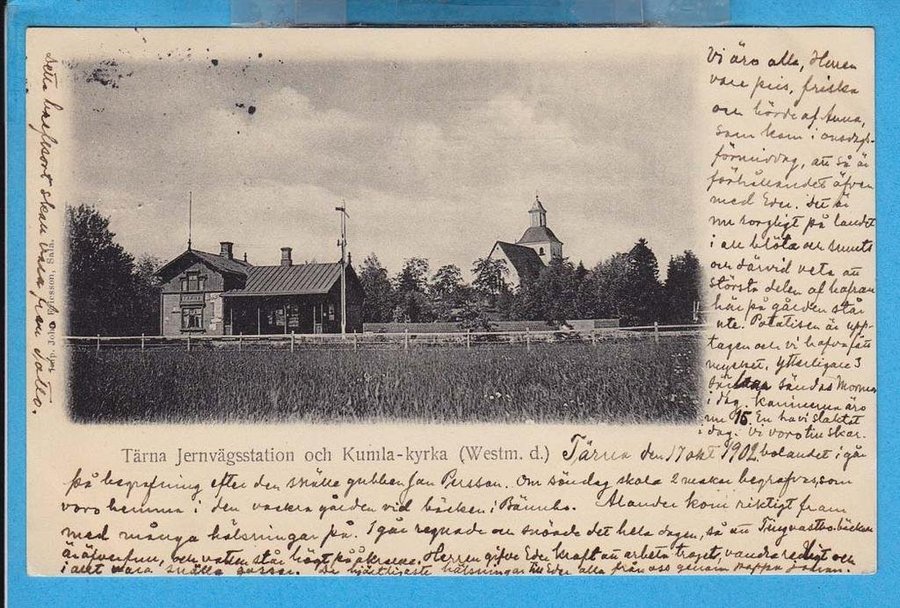 Vi äro alla, Herren
vare pris, friska
och hörde af Anna,
som kom i onsdags
förmiddag, att så är
förhållandet äfven
med Eder. Det är
nu sorgligt på landet
i all blöta och smuts
och därvid veta att
största delen af hafran
här på gården står
ute. Potatisen är upp-
tagen och vi hafva fått
mycket. Ytterligare 3
sändas Mormor
i dag. kaninerna äro
nu 15. En ha vi slaktat
i dag. Vi voro
Tärna Jernvägsstation och Kumla-kyrka (Westm. d.)
Tärna den 17 okt 1902
i går
på begrafning efter den snälle gubben Jan Persson. Om söndag skola 2 makar begrafvas, som
voro hemma i den vackra gården vid bäcken i Alander kom riktigt fram
med många hälsningar på. I går regnade och snöade det hela dagen, så att
är öfverfull, och vatten står högt på åkrarne. Herren gifve Eder kraft att arbeta troget, vandra redligt och
i allt vara snälla gossar. De hjärtligaste hälsningar till Eder alla från oss genom pappa
Detta korset skall vara från Sala.